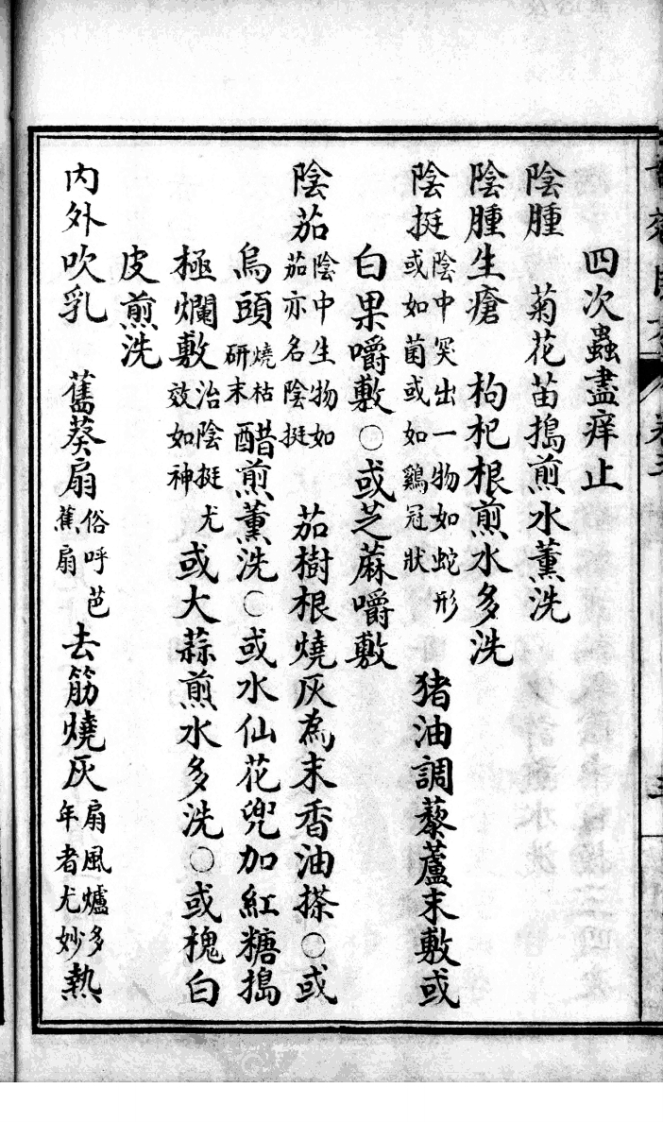 四次蟲盡痒止
陰腫　菊花苗搗煎水薰洗
陰腫生瘡　枸杞根煎水多洗
陰挺陰中突出一物如蛇形或如菌或如鷄冠狀　猪油調藜蘆末敷或
白果嚼敷○或芝蔴嚼敷
陰茄陰中生物如茄亦名陰挺　茄樹根燒灰為末香油搽○或
烏頭燒枯研末醋煎薰洗○或水仙花兜加紅糖搗
極爛敷治陰挺尤效如神或大蒜煎水多洗○或槐白
皮煎洗
內外吹乳　舊葵扇俗呼芭蕉扇去筋燒灰扇風爐多年者尤妙熱